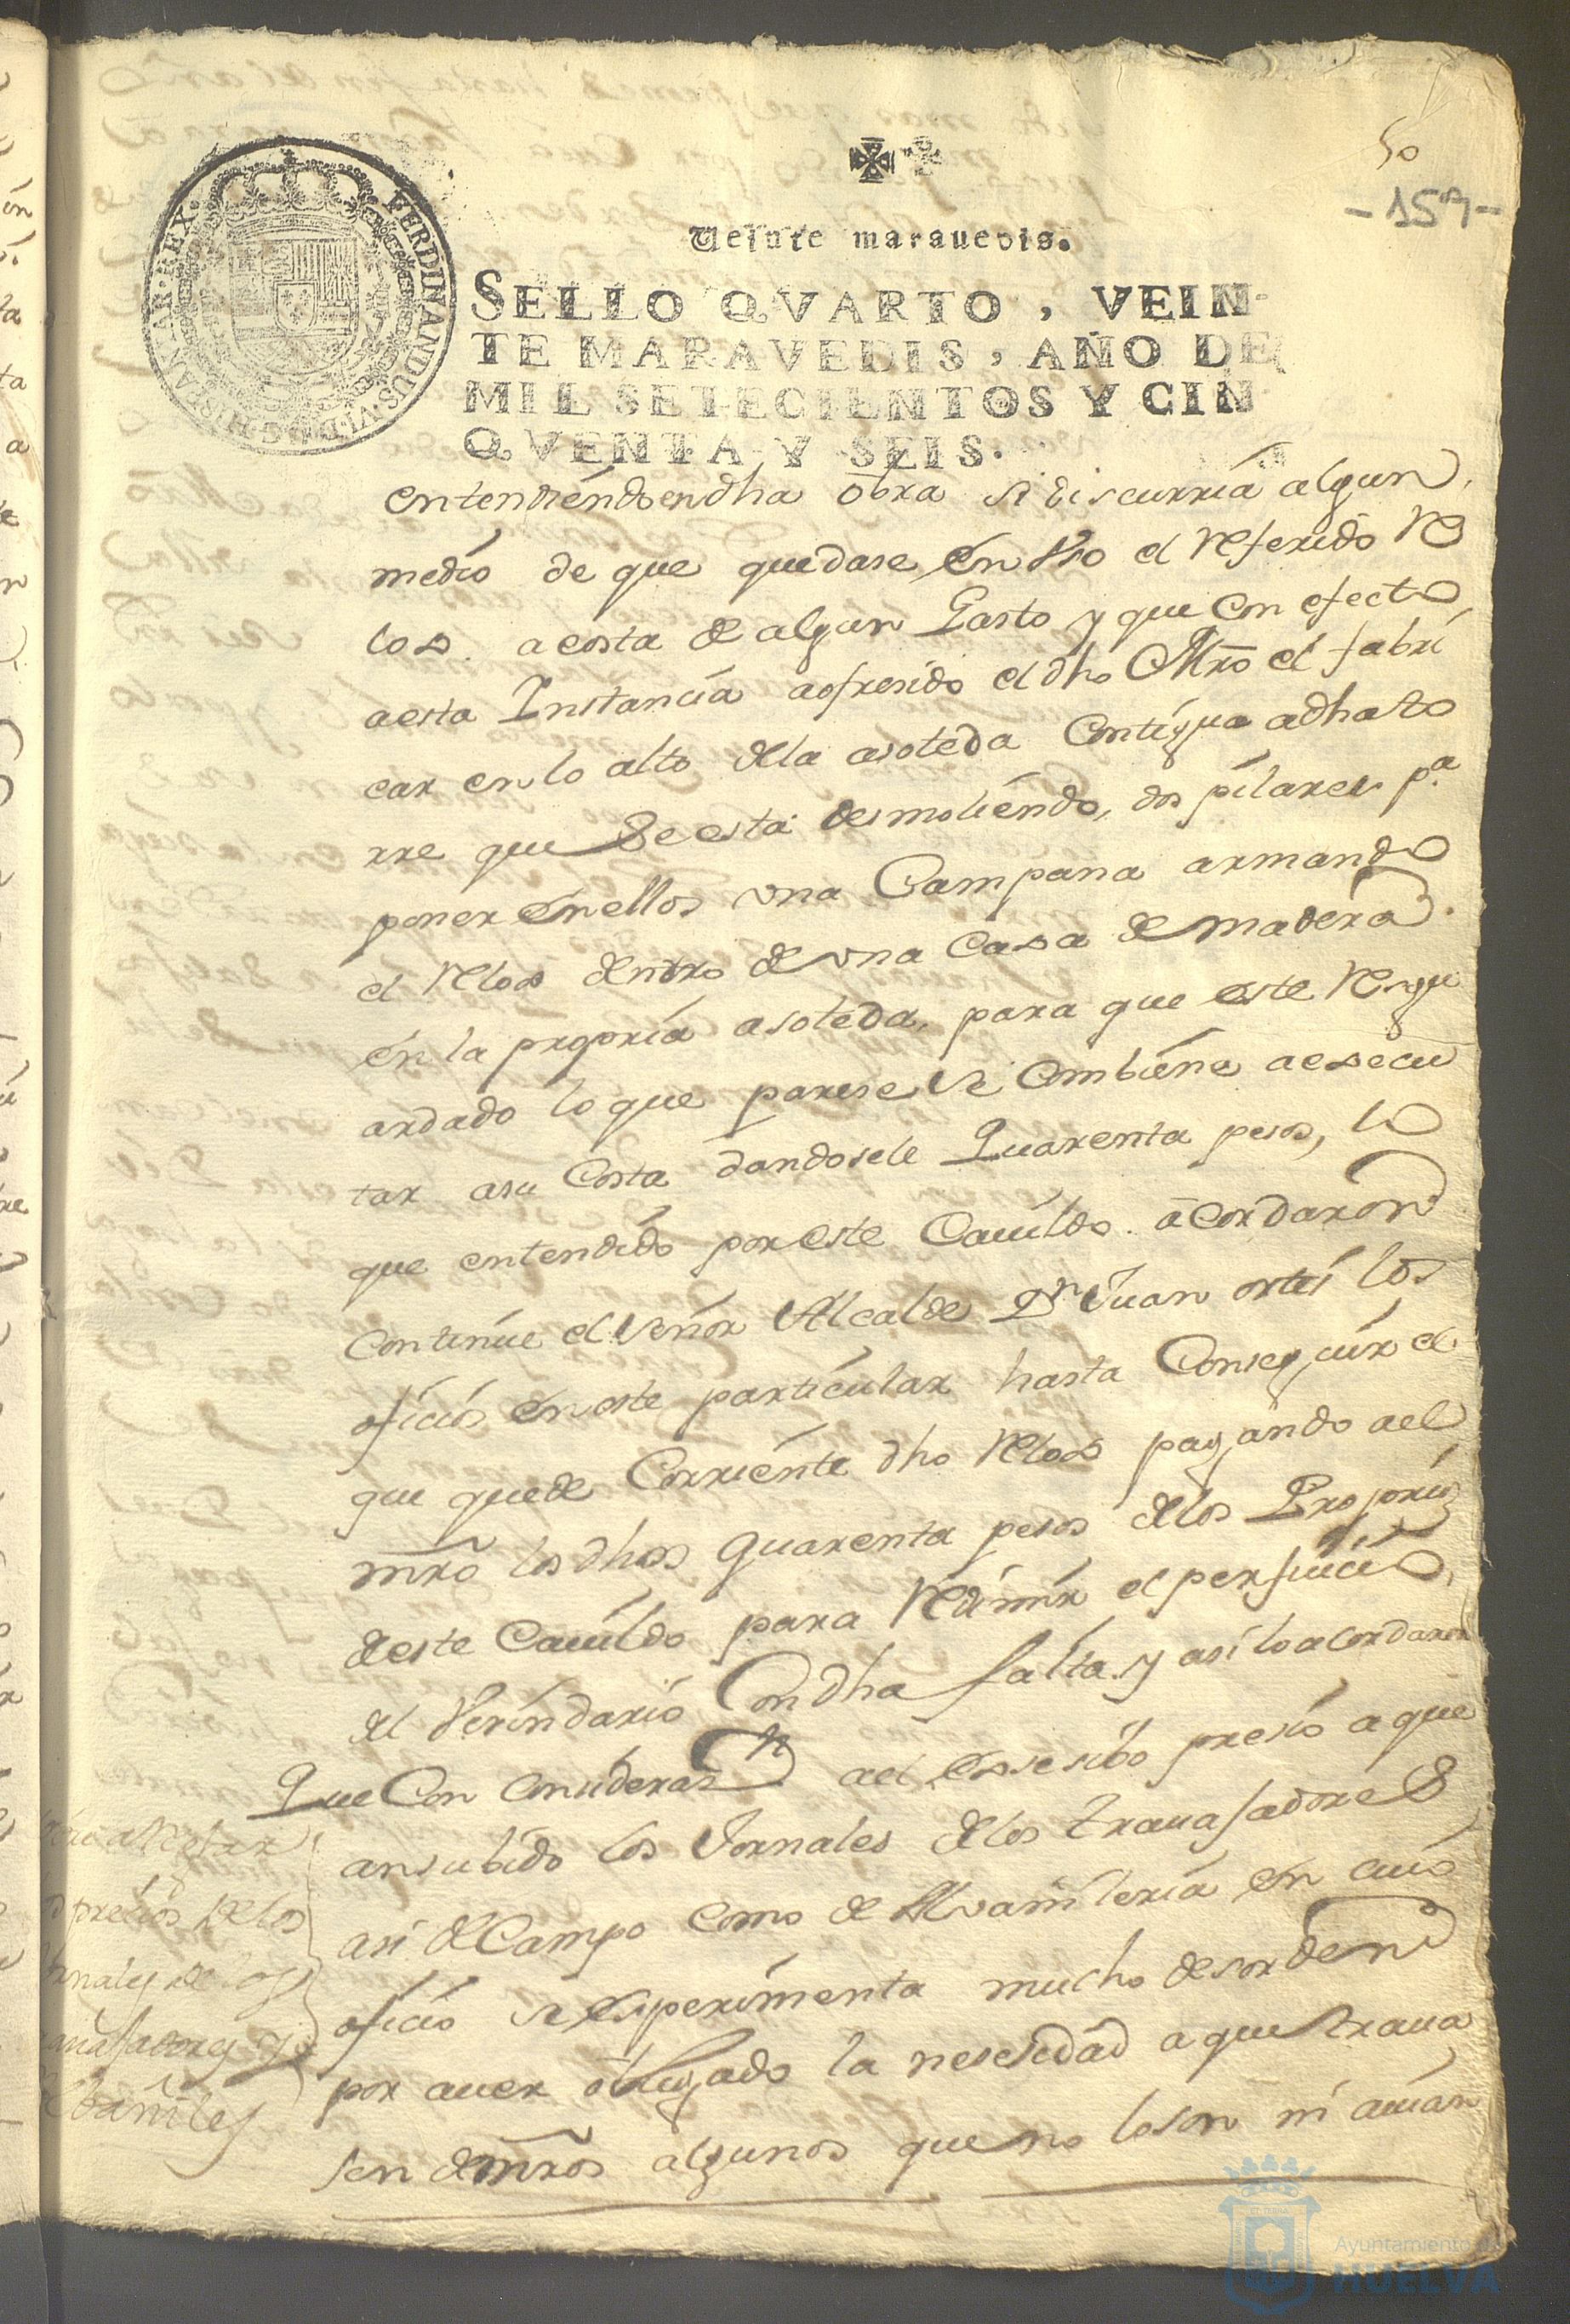 50
-159-
Veinte marauedis.
SELLO QVARTO, VEIN-
TE MARAVEDIS, AÑO DE
MIL SETECIENTOS Y CIN
QVENTA Y SEIS.
FERDINANDUS.VI.D.G.HISPANIAR.REX.
entendiéndo en dha obra si discurria algun
medio de que quedase en vso el referido re
lox a costa de algun Gasto y que con efecto
a esta Instancia a ofresido el dho Mro el fabri
car en lo alto de la asoteda Contigua a dha to
rre que se esta desmoliendo, dos pilares pa
poner en ellos vna Campana armando
el relox dentro de vna Casa de madera
en la propria asoteda, para que este resgu
ardado lo que parese se combiene a execu
tar a su Costa dandosele Quarenta pesos, lo
que entendido por este Cauildo acordaron
continúe el señor Alcalde Dn Juan ortis los
oficios en este particular hasta Conseguir el
que quede Corriente dho relox pagando a el
mro los dhos quarenta pesos de los Proprios
de este Cauildo para redimir el perjuicio
del Vesindario Con dha falta y asi lo acordaron
Que Con considerasn a el exsesibo presio a que
an subido los Jornales de los trauajadores
asi de Campo como de Alvanileria en cuio
oficio se experimenta mucho desorden
por auer obligado la nesesidad a que traua
jen de mros algunos que no lo son ni auian
precios de los
nales de los
auajadores y
lbañiles
Ayuntamiento de
HUELVA